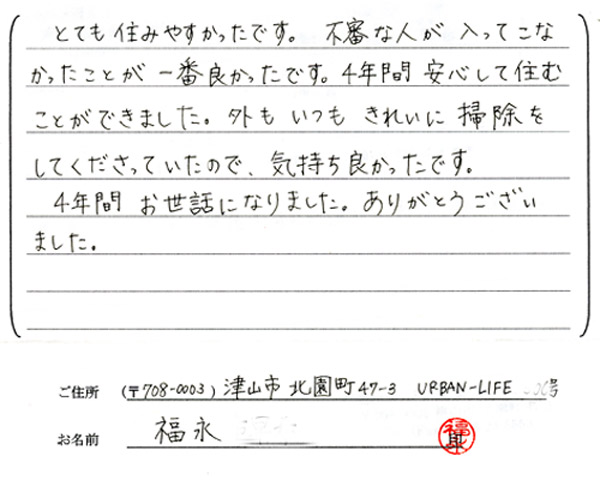 とても住みやすかったです。不審な人が入ってこな
かったことが一番良かったです。4年間安心して住む
ことができました。外もいつもきれいに掃除を
してくださっていたので、気持ち良かったです。
4年間お世話になりました。ありがとうござい
ました。
ご住所 (〒708-0003) 津山市北園町47-3 URBAN-LIFE 号
お名前 福永
福永